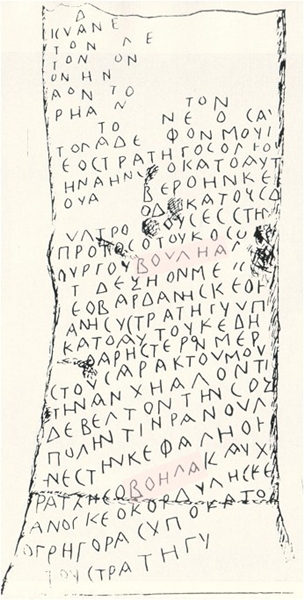 Δ
ΚVΑΝΕ
ΤΟΝ ΛΕ
ΤΟΝ ΟΝ
ΟΝ ΗΝ
ΑΟΝ ΤΟ
ΡΗΑΝ ΤΟΝ
ΤΟ ΝΕ Ο CΑV
ΤΟΛΑΔΕ ΦΟΝ ΜΟΥΙ
ΕΟCΤΡΑΤΗΓΟCΟΛΕΟ
ΗΝΑΗΝ ΟΚΑΤΟΑΥΤ
ΟΥΑ ΒΕΡΟΗΝΚΕ
ΟΔ ΚΑΤΟΥCΔ
ΟΥCΕCCΤΗ
VΛΤΡΟ
ΠΡΟΤΟCΟΤΟΥΚΟCΟ
ΟΥΡΓΟΥΒΟΥΛΗΑ
Τ ΔΕΞΗΟΝΜΕ
ΕΟΒΑΡΔΑΝΗCΚΕΟΗ
ΑΝΗCΥCΤΡΑΤΗΓΥVΠ
ΚΑΤΟΑΥΤΟΥΚΕΔΗ
ΑΡΗCΤΕΡΟΝΜΕΡ
CΤΟΥCΑΡΑΚΤΟΥΜΟΥ
ΤΗΝΑΝΧΗΑΛΟΝΤΙ
ΔΕΒΕΛΤΟΝΤΗΝCΟΣ
ΠΟΛΗΝΤΙΝΡΑΝΟΥΛ
ΝΕCΤΗΝΚΕΦΑΛΗΟΗ
ΡΑΤΧΗCΟΒΟΗΛΑΚΑΥΧ
ΑΝΟΓΚΕΟΚΟΡΔΥΛΗCΚΕ
ΟΓΡΗΓΟΡΑCΥΠΟΚΑΤΟ
ΤΟΥCΤΡΑΤΗΓΥ